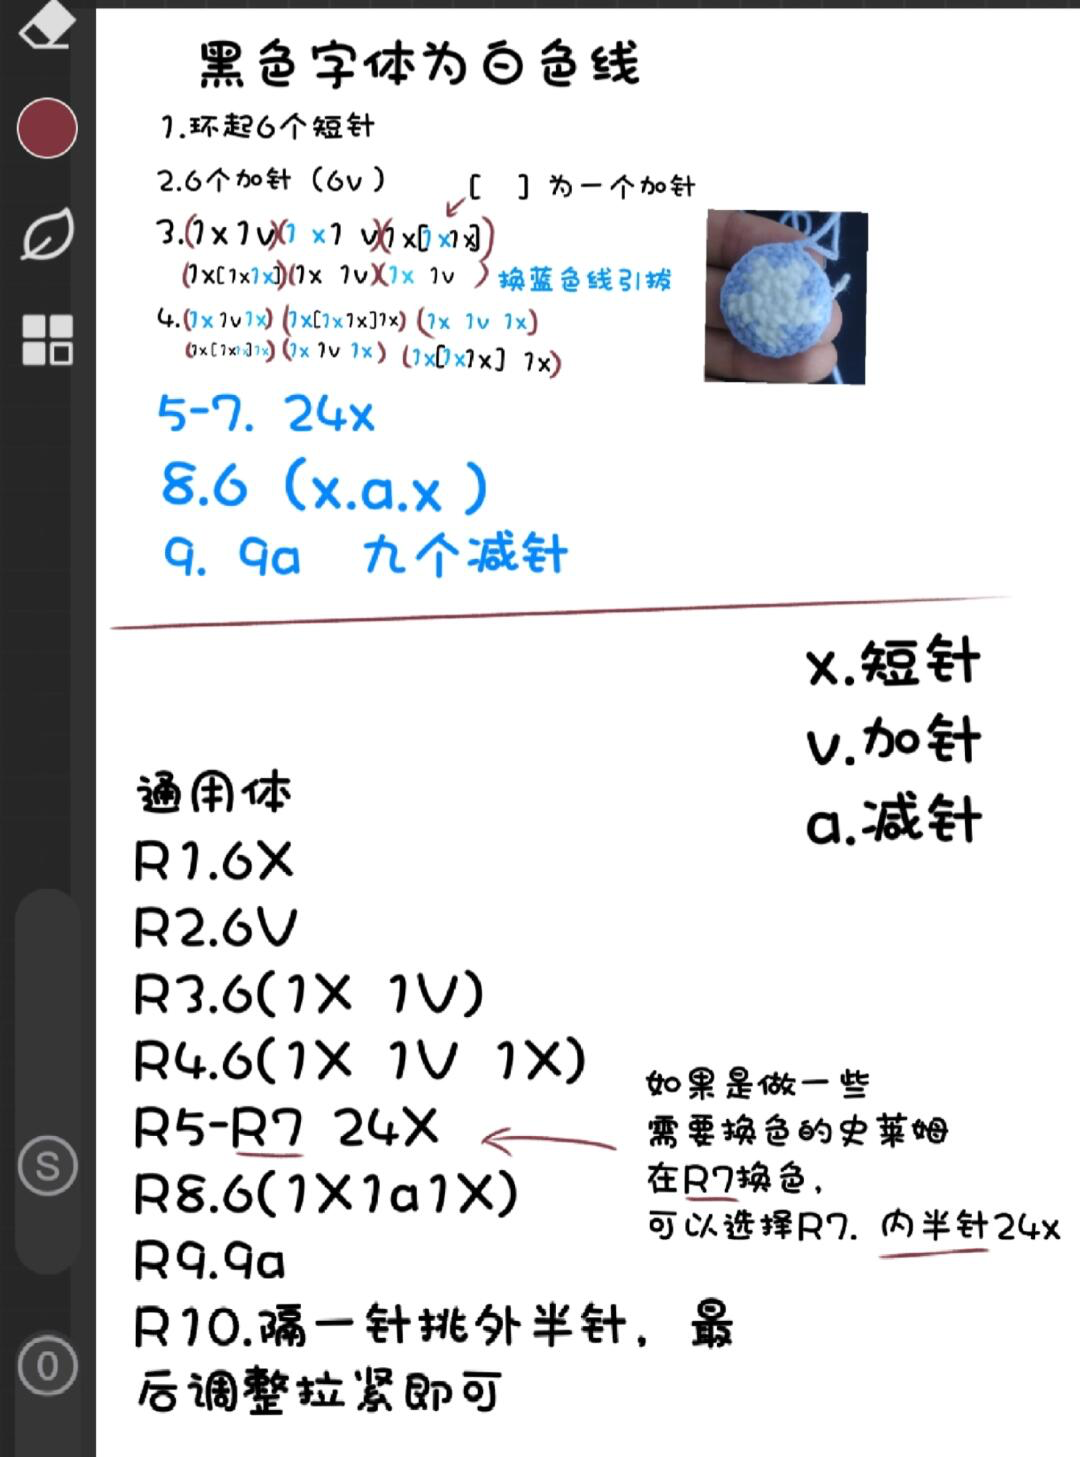 黑色字体为白色线
1.环起6个短针
2.6个加针（6v）
[ ]为一个加针
3.(1x1v)(1x1v)(1x[1x1x])
(1x[1x1x])(1x 1v)(1x 1v) 换蓝色线引拔
4.(1x1v1x)(1x[1x1x]1x)(1x 1v 1x)
(1x[1x1x]1x)(1x 1v 1x)(1x[1x1x] 1x)
5-7. 24x
8.6（x.a.x）
9. 9a 九个减针
x.短针
v.加针
a.减针
通用体
R1.6X
R2.6V
R3.6(1X 1V)
R4.6(1X 1V 1X)
R5-R7 24X
R8.6(1X1a1X)
R9.9a
R10.隔一针挑外半针，最
后调整拉紧即可
如果是做一些
需要换色的史莱姆
在R7换色，
可以选择R7.内半针24x
S
0